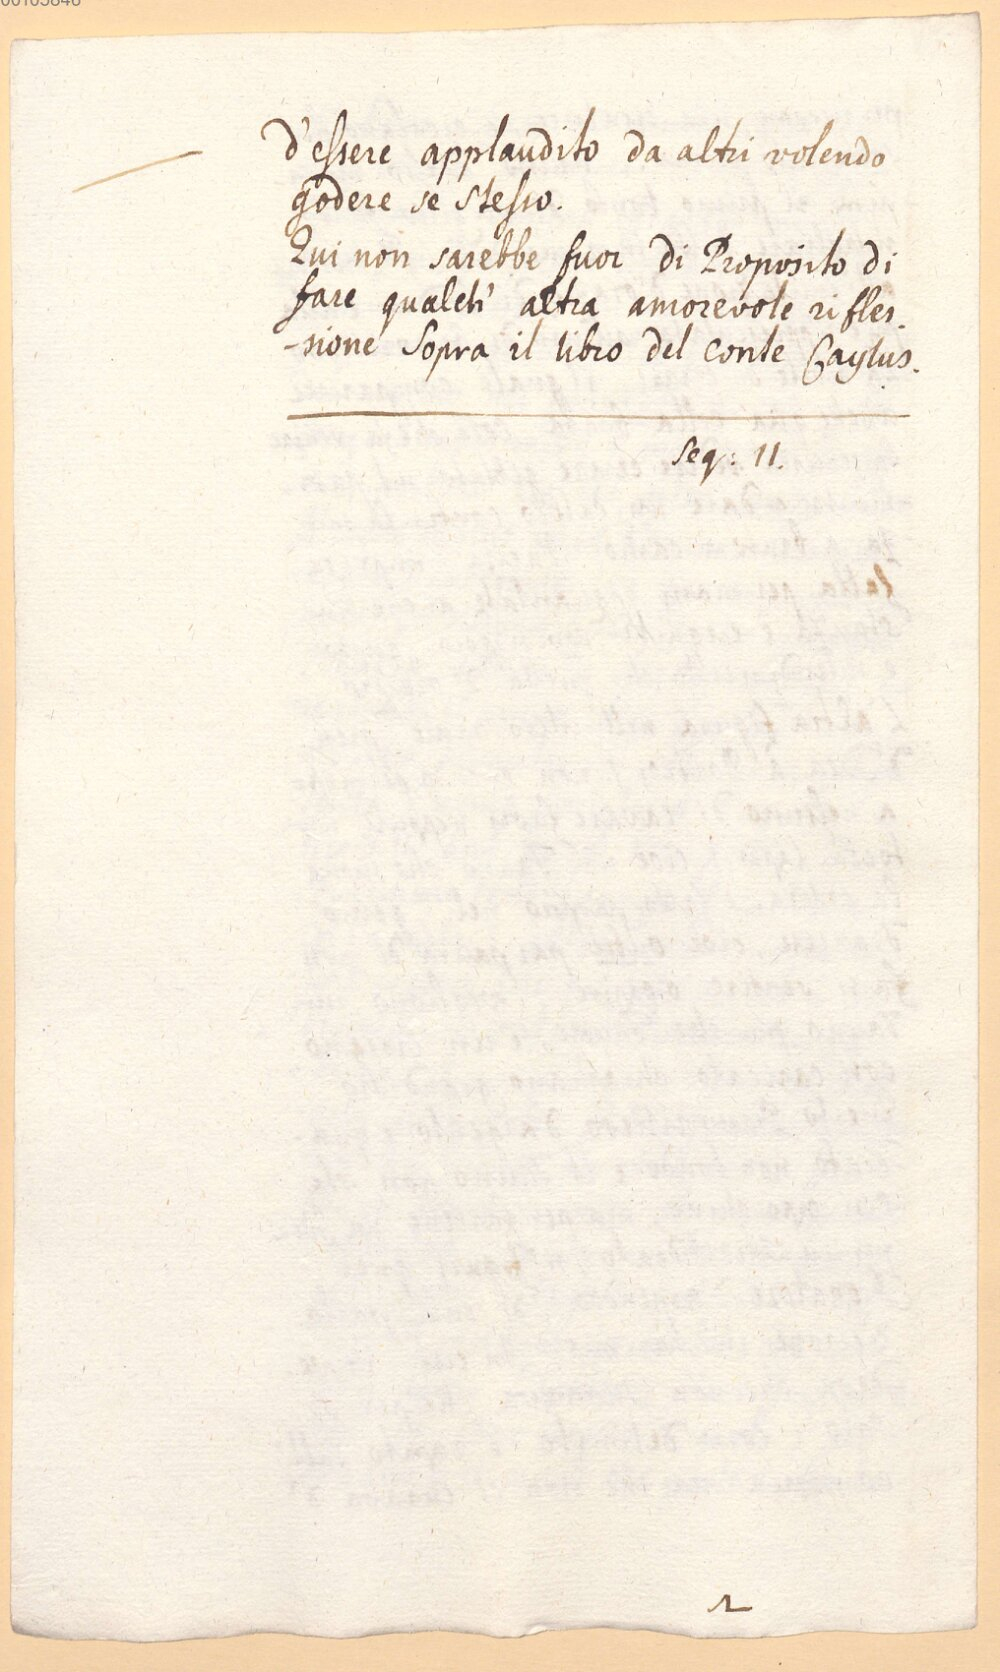 00105846
d'essere applaudito da altri volendo
godere se stesso.
Qui non sarebbe fuor di Proposito di
fare qualch' altra amorevole rifles-
-sione sopra il libro del Conte Caylus.
Seq: 11.